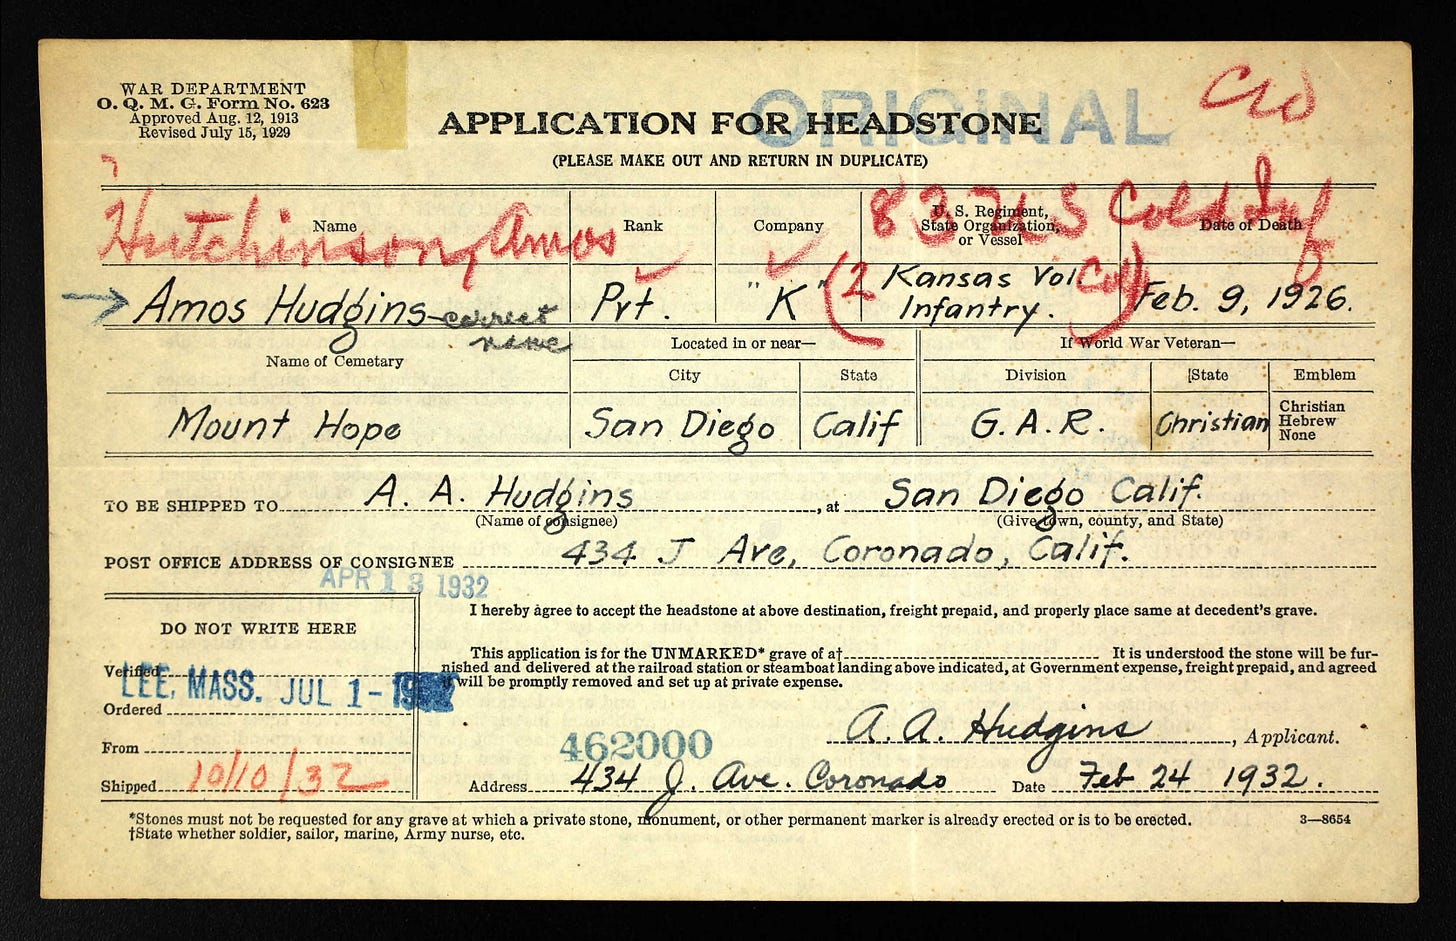 WAR DEPARTMENT
O. Q. M. G. Form No. 623
Approved Aug. 12, 1913
Revised July 15, 1929
ORIGINAL
APPLICATION FOR HEADSTONE
(PLEASE MAKE OUT AND RETURN IN DUPLICATE)
Hutchinson, Amos
83 U S Cold Inf
Name
Rank
Company
U. S. Regiment,
State Organization,
or Vessel
Date of Death
Amos Hudgins - correct
name
Pvt.
"K"
(2 Kansas Vol Col)
Infantry.
Feb. 9, 1926.
Name of Cemetary
Located in or near—
If World War Veteran—
City
State
Division
[State
Emblem
Mount Hope
San Diego
Calif
G. A. R.
Christian
Christian
Hebrew
None
TO BE SHIPPED TO A. A. Hudgins, at San Diego Calif.
(Name of consignee)
(Give town, county, and State)
POST OFFICE ADDRESS OF CONSIGNEE 434 J Ave, Coronado, Calif.
APR 13 1932
I hereby agree to accept the headstone at above destination, freight prepaid, and properly place same at decedent's grave.
DO NOT WRITE HERE
Verified
LEE, MASS. JUL 1-
Ordered
From
Shipped 10/10/32
This application is for the UNMARKED* grave of a† It is understood the stone will be fur-
nished and delivered at the railroad station or steamboat landing above indicated, at Government expense, freight prepaid, and agreed
it will be promptly removed and set up at private expense.
A. A. Hudgins, Applicant.
462000
Address 434 J. Ave. Coronado Date Feb 24 1932.
*Stones must not be requested for any grave at which a private stone, monument, or other permanent marker is already erected or is to be erected.
3—8654
†State whether soldier, sailor, marine, Army nurse, etc.